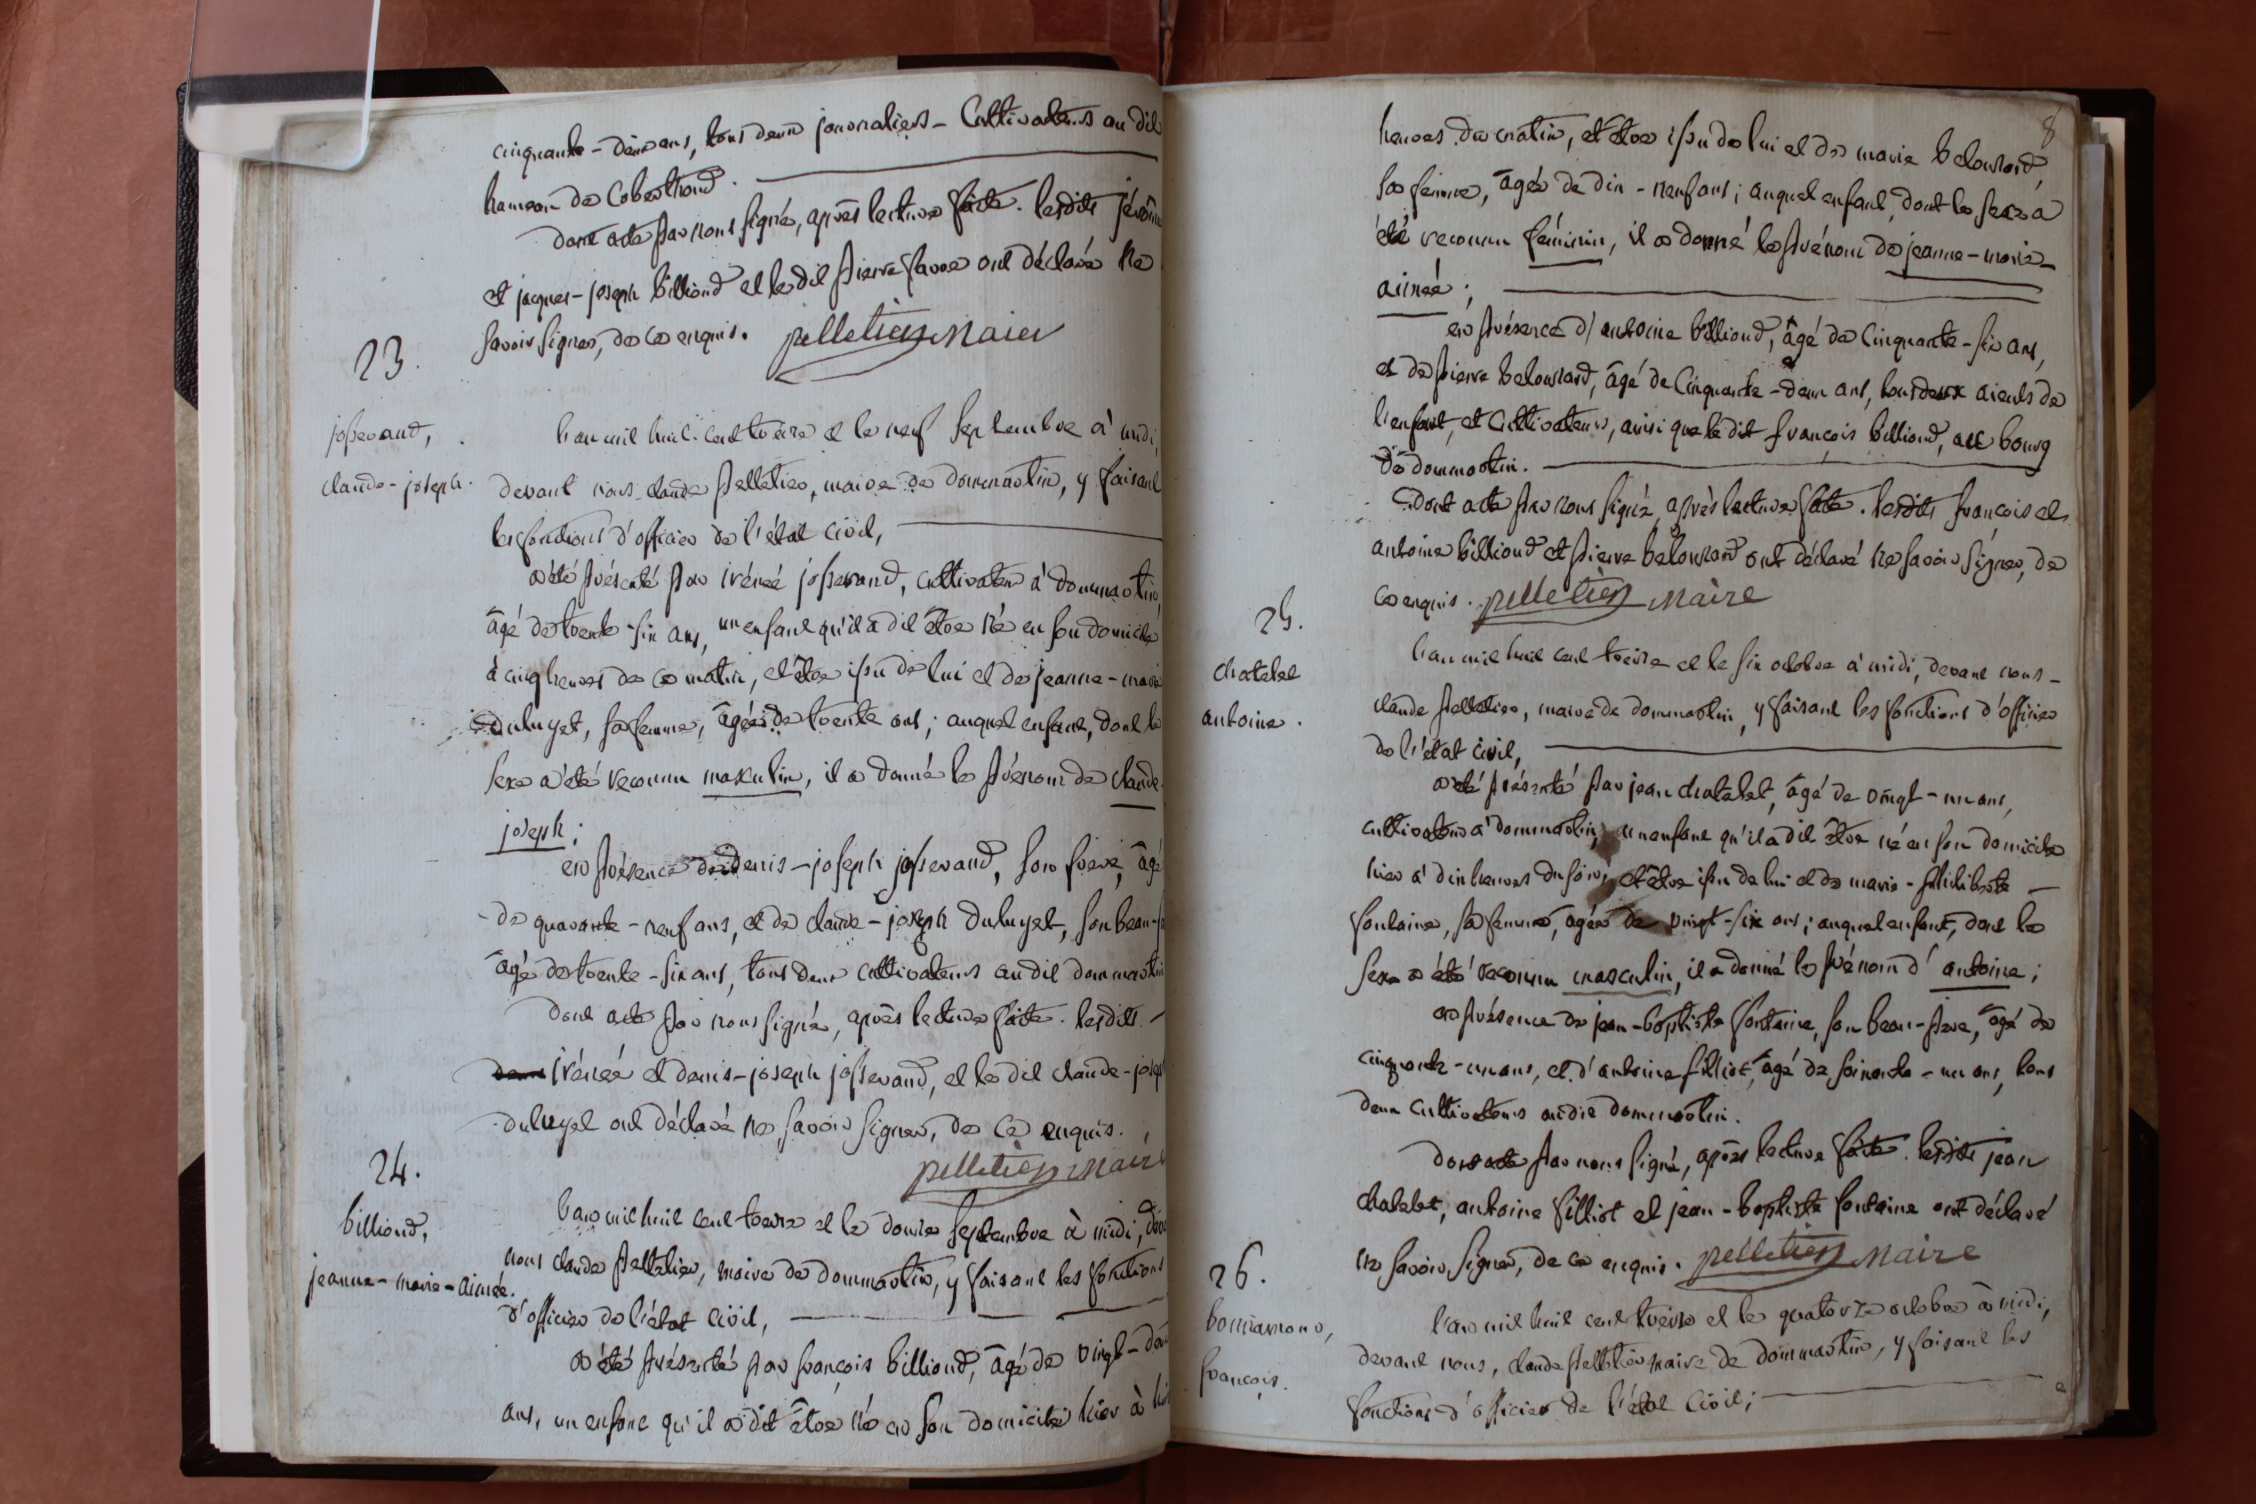 cinquante-deux ans, tous deux journaliers-Cultivateurs au dit
hameau de Coberthoud.
dont acte par nous signé, après lecture faite. lesdits jérôme
et jacques-joseph billioud et le dit pierre favre ont déclaré ne
savoir signer, de ce enquis. pelletier Maire
23.
josserand,
claude-joseph.
l'an mil huit-cent treize et le neuf Septembre à midi,
devant nous claude pelletier, maire de dommartin, y faisant
les fonctions d'officier de l'état civil,
a été présenté par irénée josserand, cultivateur à dommartin,
âgé de trente-six ans, un enfant qu'il a dit être né en son domicile
à cinq heures de ce matin, et être issu de lui et de jeanne-marie
duluyet, sa femme, âgée de trente ans; auquel enfant, dont le
sexe a été reconnu masculin, il a donné le prénom de claude-
joseph;
en présence de denis-joseph josserand, son frère, âgé
de quarante-neuf ans, et de claude-joseph duluyet, son beau-
âgé de trente-six ans, tous deux cultivateurs au dit dommartin
dont acte par nous signé, après lecture faite. lesdits
irénée et denis-joseph josserand, et le dit claude-joseph
duluyet ont déclaré ne savoir signer, de ce enquis.
pelletier Maire
24.
billioud,
jeanne-marie-aimée.
l'an mil huit cent treize et le douze septembre à midi,
nous claude pelletier, maire de dommartin, y faisant les fonctions
d'officier de l'état civil,
a été présenté par françois billioud, âgé de vingt-deux
ans, un enfant qu'il a dit être né en son domicile hier à
8
heures du matin, et être issu de lui et de marie belouzard
sa femme, âgée de dix-neuf ans; auquel enfant, dont le sexe a
été reconnu féminin, il a donné le prénom de jeanne-marie-
aimée;
en présence d'antoine billioud, âgé de Cinquante-six ans,
et de pierre belouzard, âgé de Cinquante-deux ans, tous deux aieuls de
l'enfant, et Cultivateurs, ainsi que le dit françois billioud, au bourg
de dommartin.
Dont acte par nous signé, après lecture faite. lesdits françois et
antoine billioud et pierre belouzard ont déclaré ne savoir signer, de
ce enquis. pelletier Maire
25.
chatelet
antoine.
l'an mil huit cent treize et le six octobre à midi, devant nous-
claude pelletier, maire de dommartin, y faisant les fonctions d'officier
de l'état civil,
a été présenté par jean chatelet, âgé de vingt-un ans,
cultivateur à dommartin, un enfant qu'il a dit être né en son domicile
hier à dix heures du soir, et être issu de lui et de marie-philiberte
fontaine, sa femme, âgée de vingt-six ans; auquel enfant, dont le
sexe a été reconnu masculin, il a donné le prénom d'antoine;
en présence de jean-baptiste fontaine, son beau-père, âgé de
cinquante-un ans, et d'antoine filliot, âgé de soixante-un ans, tous
deux cultivateurs audit dommartin.
dont acte par nous signé, après lecture faite. lesdits jean
chatelet, antoine filliot et jean-baptiste fontaine ont déclaré
ne savoir signer, de ce enquis. pelletier Maire
26.
françois.
l'an mil huit cent treize et le quatorze octobre à midi,
devant nous, claude pelletier maire de dommartin, y faisant les
fonctions d'officier de l'état civil;